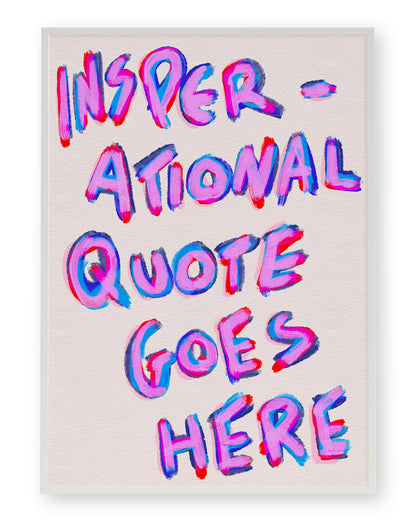 INSPER-
ATIONAL
QUOTE
GOES
HERE